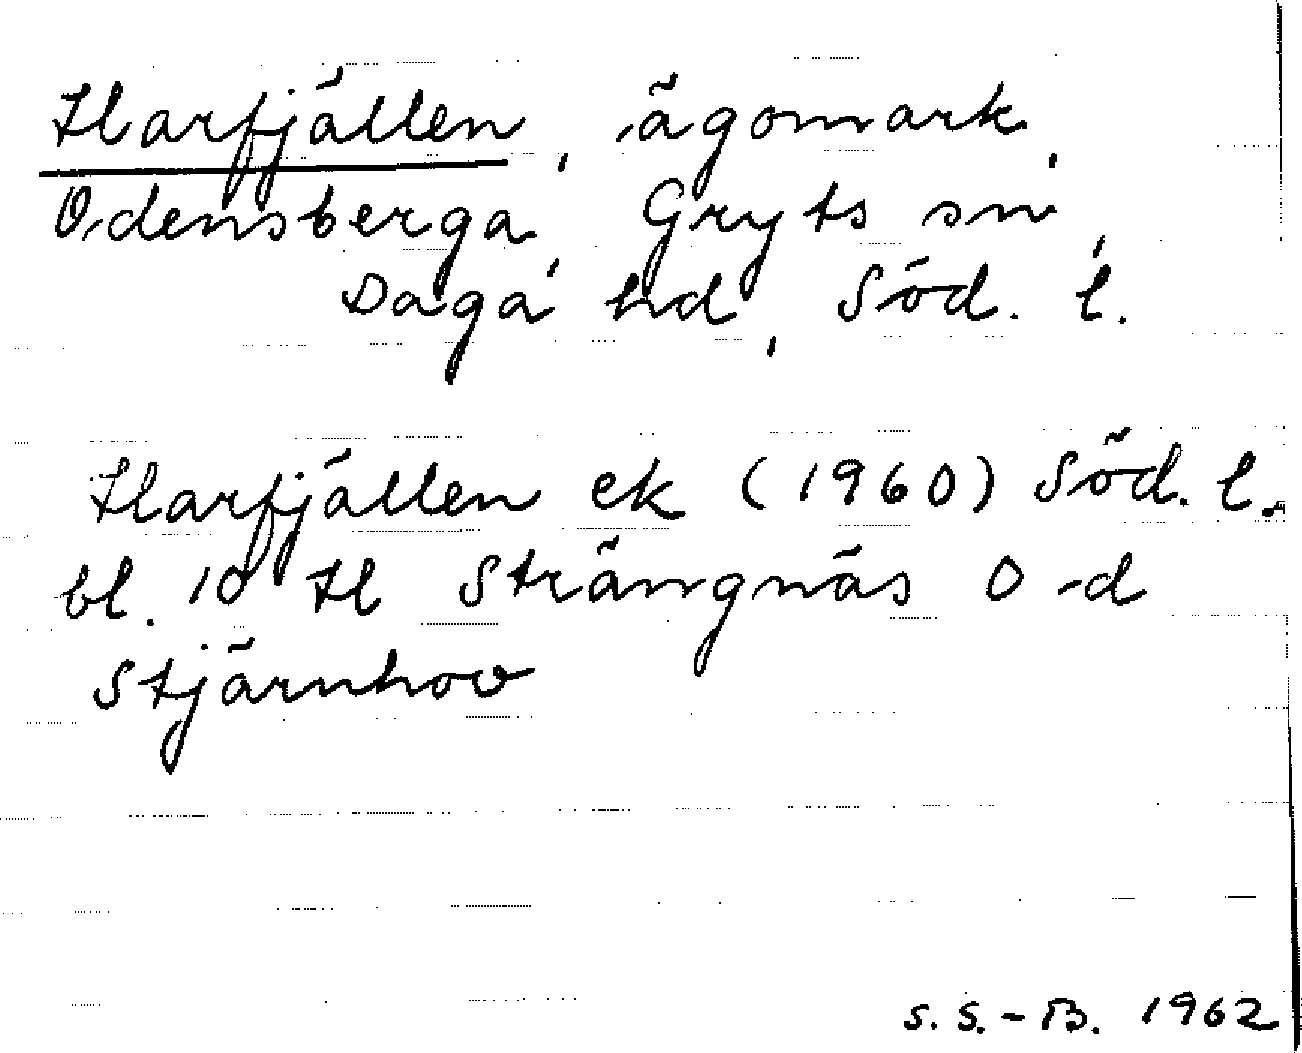 Harfjällen, ägomark,
Odensberga, Gryts sn,
Daga hd, Söd. l.
Harfjällen ek (1960) Söd. l.
bl. 10 H Strängnäs O-d
Stjärnhov
S.S.-B. 1962